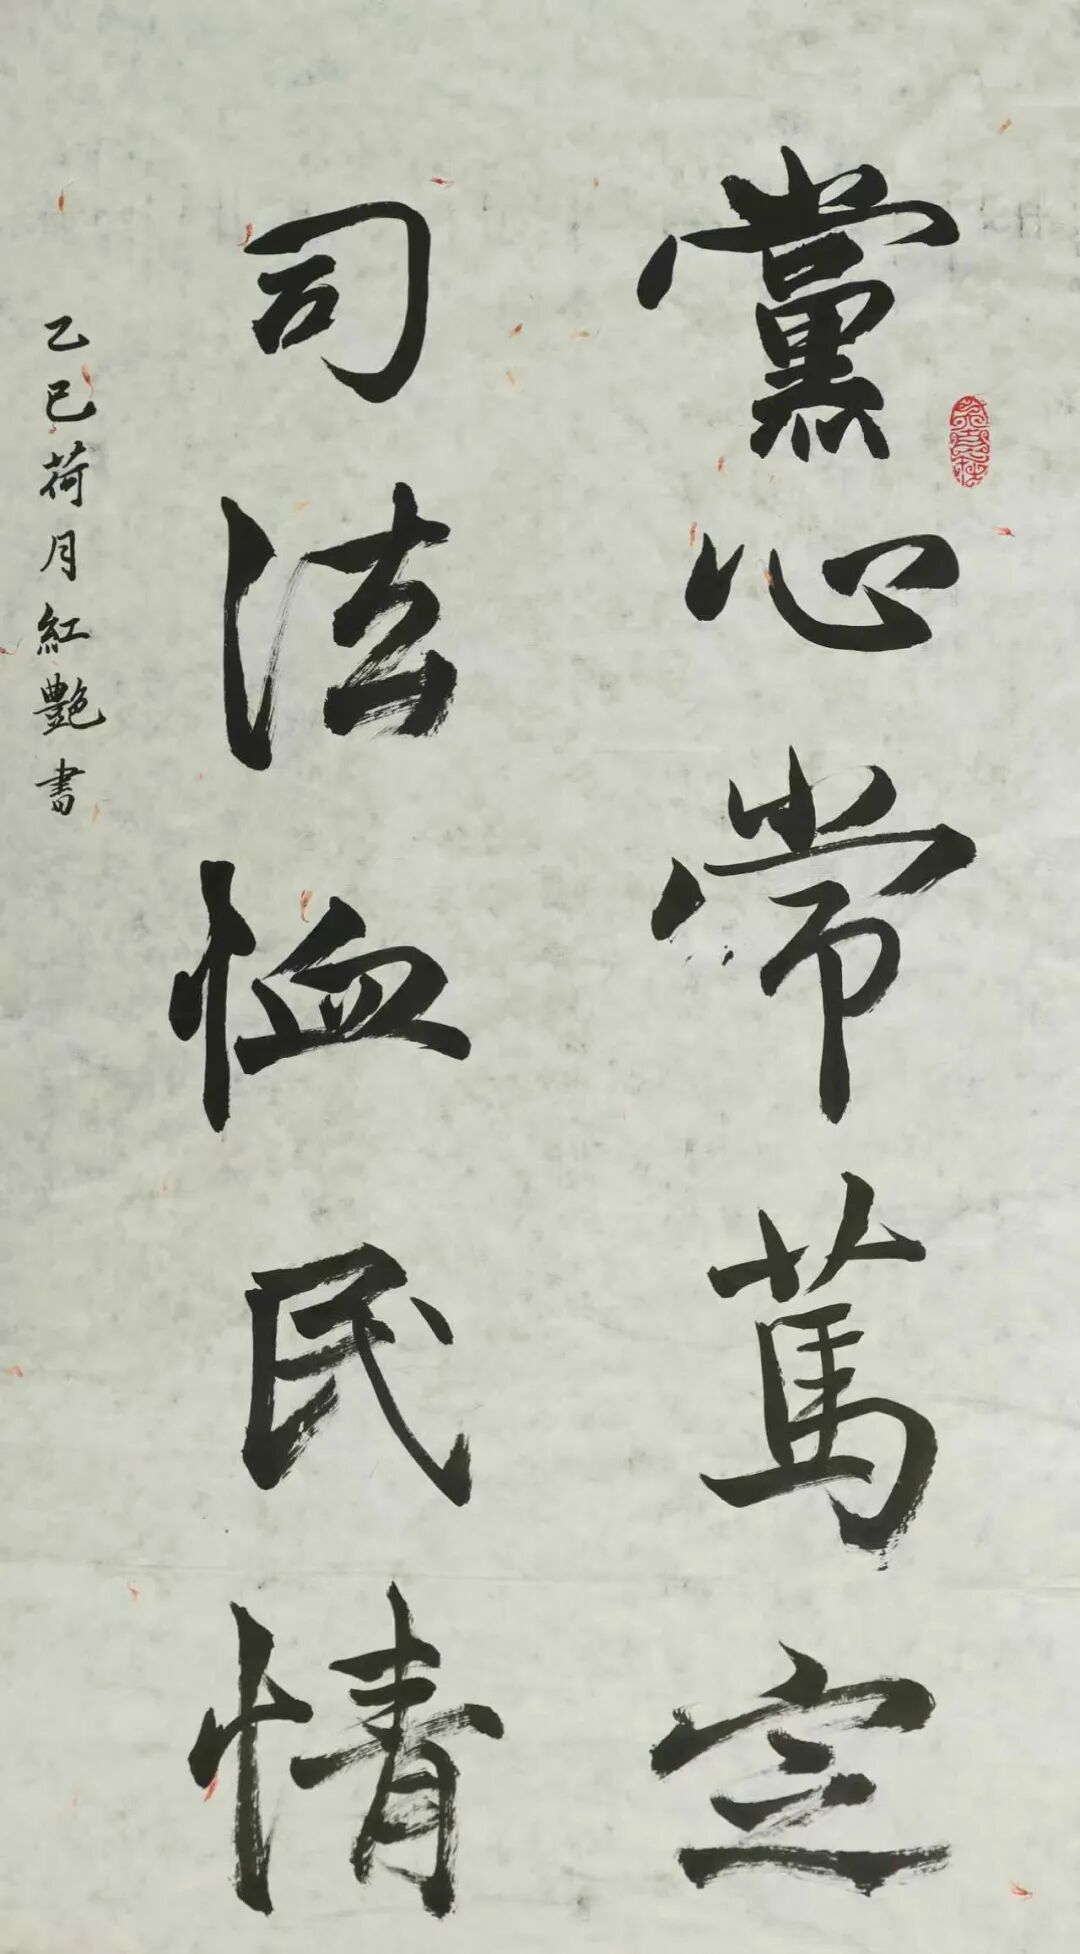 黨心常篤定
司法恤民情
乙巳荷月紅艷書